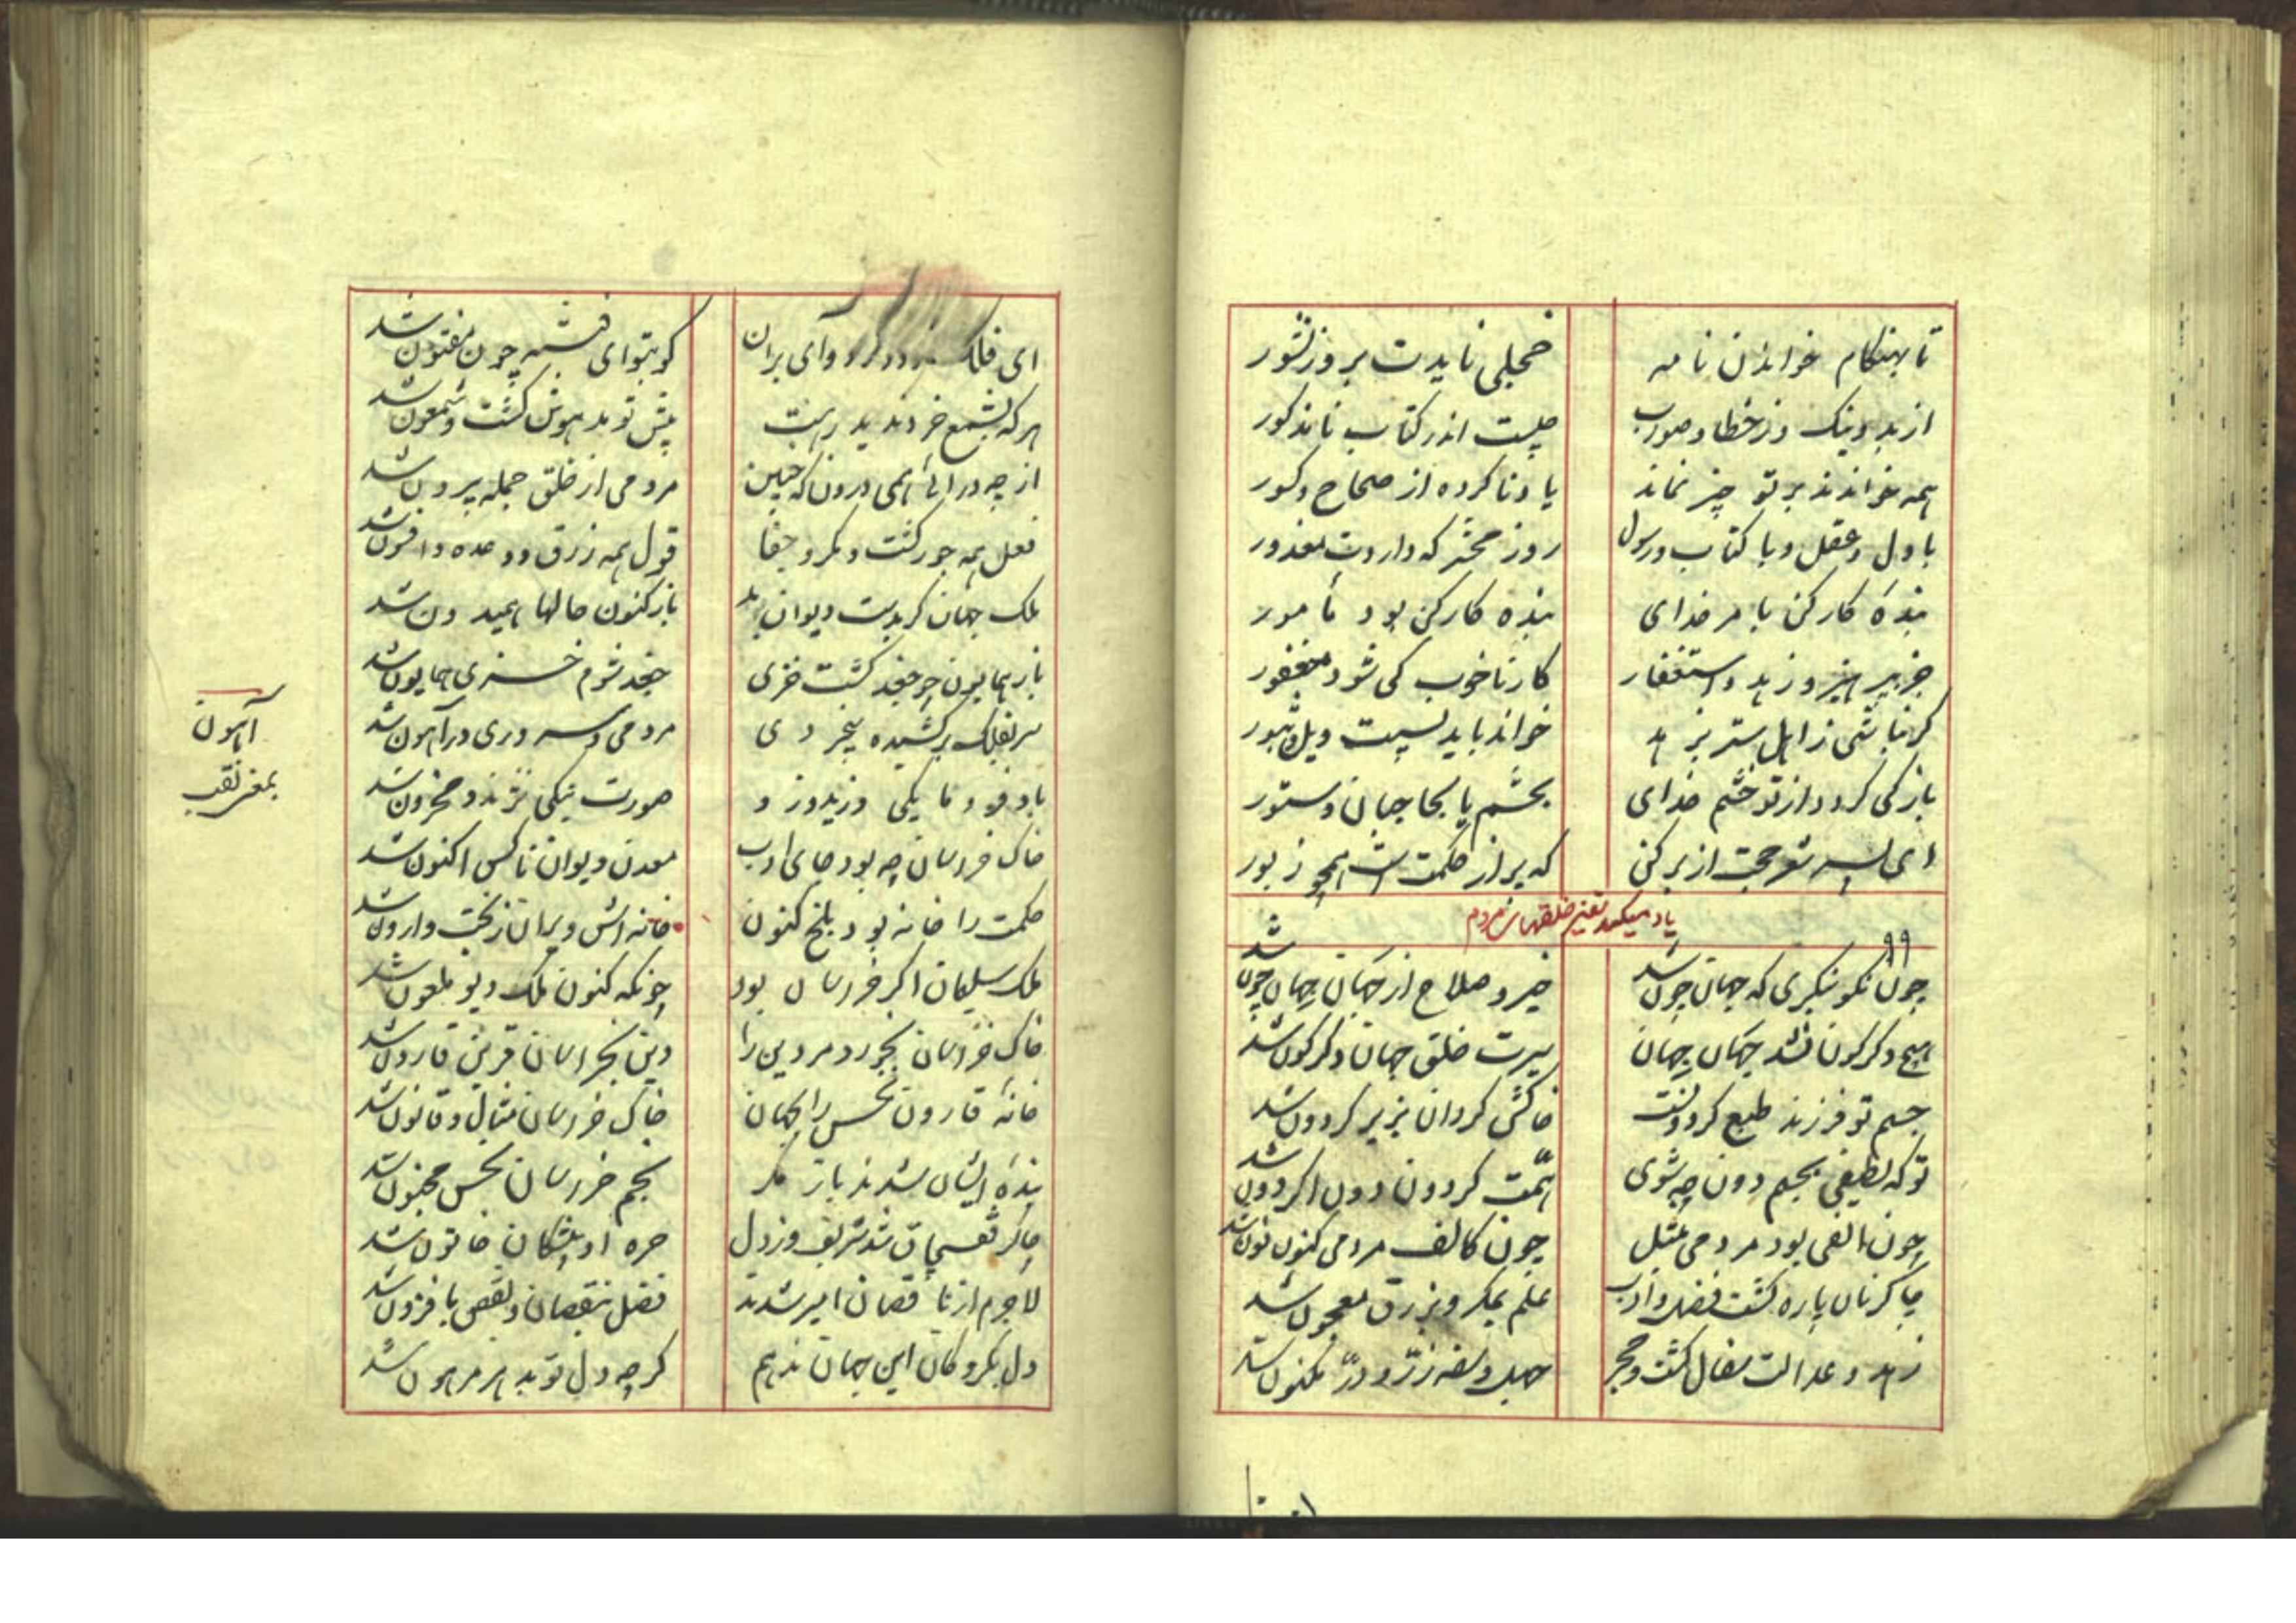 تا بهنکام خواندن نامه خجلی نایدت بروز نشور
از بد و نیک وز خطا و صواب چیست اندر کتاب نامذکور
همه خوانند بر تو چیز نماند یاد ناکرده از صحاح و کسور
با دل و عقل و با کتاب و رسول روز محشر که داردت معذور
بندهٔ کارکن بامر خدای بنده کارکن بود مأمور
جز بپرهیز و زهد و استغفار کار ناخوب کی شود مغفور
کر نباشی ز اهل ستر بزهد خواند باید بسیت ویل و ثبور
باز کی کردد از تو خشم خدای بحشم یا بحاجبان و ستور
ای پسر شعر حجت از بر کن که پر از حکمت است همچو زبور
یاد میکند تغیر خلقهای مردم
۹۹
چون نکو ننکری که جهان چون شد خیر و صلاح از جهان جهان چون شد
هیچ دکرکون نشد جهان جهان سیرت خلق جهان دکرکون شد
جسم تو فرزند طبع کردونست خاکش کردان بزیر کردون شد
تو که لطیفی بجسم دون چه شوی همت کردون دون اکر دون شد
چون الفی بود مردمی بمثل چون کالف مردمی کنون نون شد
چاکر نان پاره کشت فضل و ادب علم بمکر و بزرق معجون شد
زهد و عدالت سفال کشت و حجر جهل و سفه زر و در مکنون شد
ای فلک زود کرد وای بران کو بتوای فتنه چون مفتون شد
هرکه بشمع خرد ندید رهت پیش تو مدهوش کشت و شمعون شد
از چه درائی همی درون که چنین مردمی از خلق جمله بیرون شد
فعل همه جور کشت و مکر و جفا قول همه زرق و وعده و افسون شد
ملک جهان کر بدست دیوان بد باز کنون حالها همیدون شد
باز همایون چو جغد کشت خزی جغد شوم خسیری همایون شد
سر بفلک برکشیده بیخردی مردمی و سروری در آهون شد
باد فرومایکی وزید وزو صورت نیکی نژند و محزون شد
خاک خراسان چه بود جای ادب معدن دیوان ناکس اکنون شد
حکمت را خانه بود بلخ کنون خانه اش ویران ز بخت وارون شد
ملک سلیمان اکر خراسان بود چونکه کنون ملک دیو ملعون شد
خاک خراسان بخورد مر دین را دین بخراسان قرین قارون شد
خانهٔ قارون نحس را بجهان خاک خراسان مثال و قانون شد
بندهٔ ایشان بدند باز مکر نجم خراسان نحس مجنون شد
چاکر قفچاق شد شریف وز دل حره او پیشکان خاتون شد
لاجرم ار ناقصان امیر شدند فضل بنقصان و نقص بافزون شد
دل بکروکان این جهان ندهم کرچه دل تو بدهر مرهون شد
آهون
بمعنی نقب